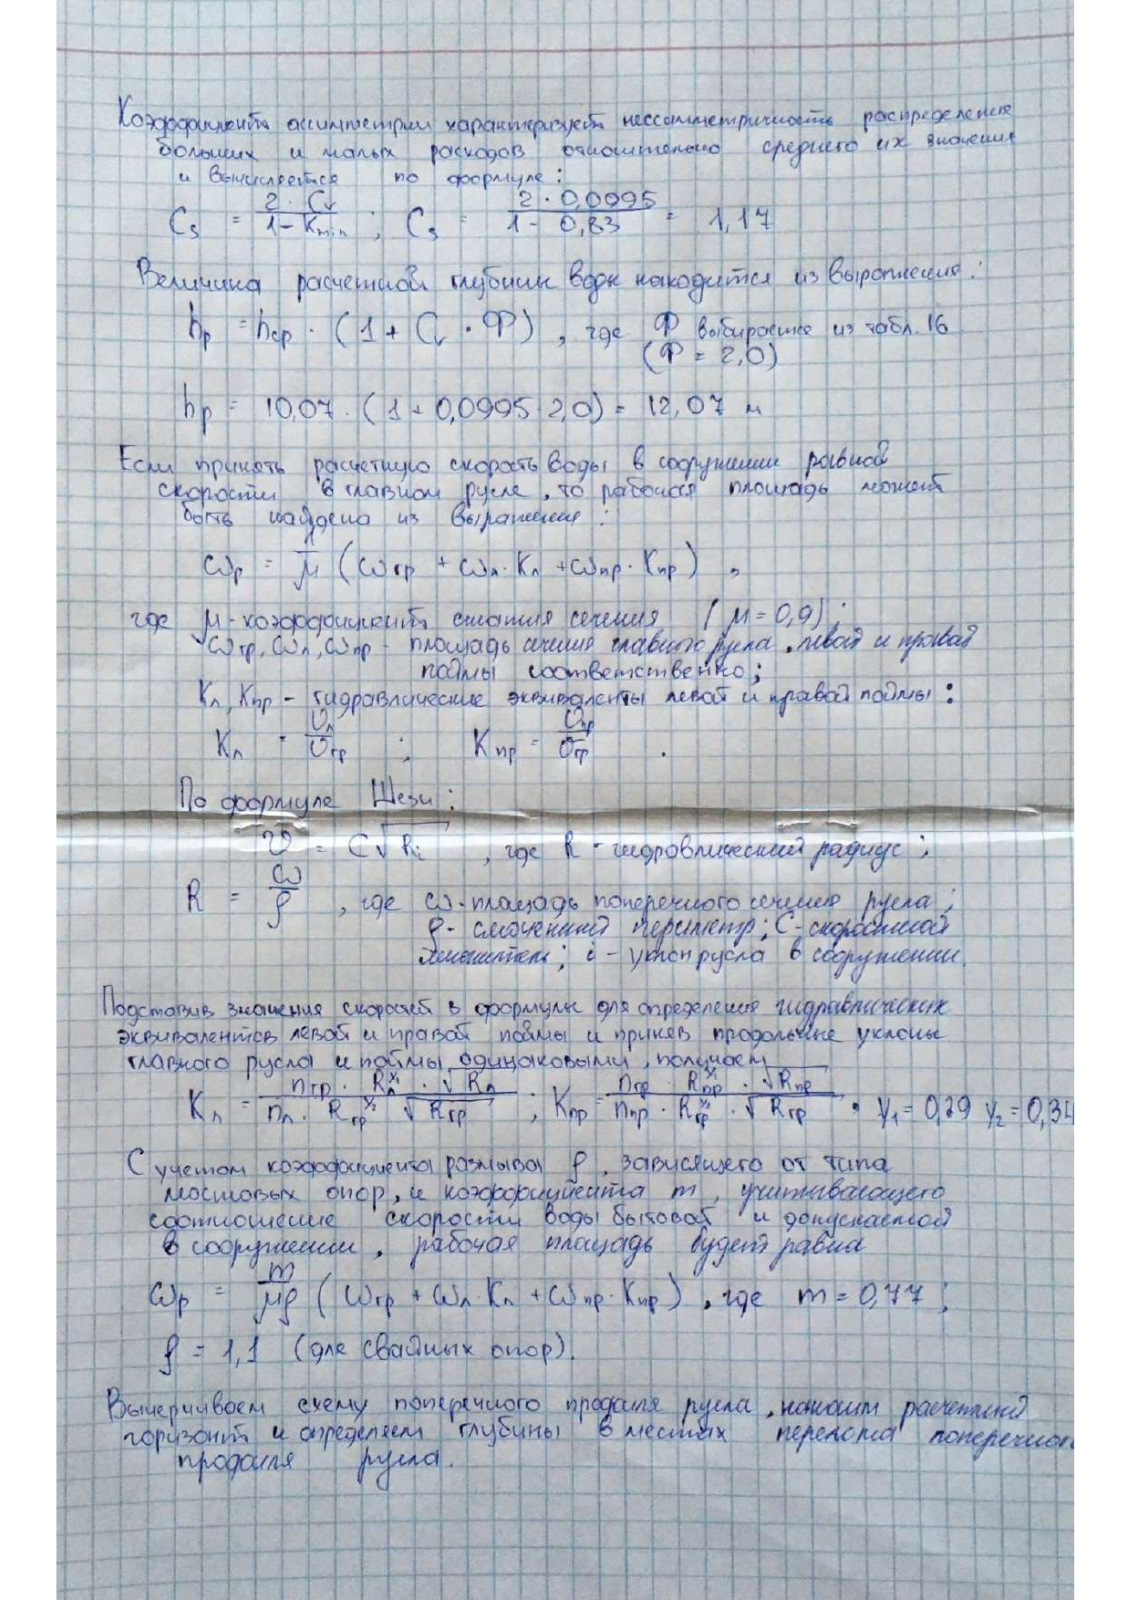 Коэффициент ассимметрии характеризует нессимметричность распределения
больших и малых расходов относительно среднего их значения
и вычисляется по формуле:
C_s = (2 · C_v)/(1 - K_min) ; C_s = (2 · 0,0995)/(1 - 0,83) = 1,17
Величина расчетной глубины воды находится из выражения:
h_p = h_ср · (1 + C_v · Ф) , где Ф выбирается из табл. 16
(Ф = 2,0)
h_p = 10,07 · (1 + 0,0995 · 2,0) = 12,07 м
Если принять расчетную скорость воды в сооружении равной
скорости в главном русле, то рабочая площадь может
быть найдена из выражения:
ω_p = 1/μ (ω_гр + ω_л · K_л + ω_пр · K_пр) ,
где μ - коэффициент сжатия сечения (μ = 0,9);
ω_гр, ω_л, ω_пр - площадь сечения главного русла, левой и правой
поймы соответственно;
K_л, K_пр - гидравлические эквиваленты левой и правой поймы:
K_л = υ_л/υ_гр ; K_пр = υ_пр/υ_гр .
По формуле Шези:
υ = C√Ri , где R - гидравлический радиус;
R = ω/ρ , где ω - площадь поперечного сечения русла;
ρ - смоченный периметр; C - скоростной
множитель; i - уклон русла в сооружении.
Подставив значения скоростей в формулы для определения гидравлических
эквивалентов левой и правой поймы и приняв продольные уклоны
главного русла и поймы одинаковыми, получаем
K_л = (n_гр · R_л^y₁ · √R_л)/(n_л · R_гр^y₂ √R_гр) ; K_пр = (n_гр · R_пр^y₁ · √R_пр)/(n_пр · R_гр^y₂ · √R_гр) . y₁ = 0,29 y₂ = 0,34
С учетом коэффициента размыва ρ, зависящего от типа
мостовых опор, и коэффициента m, учитывающего
соотношение скорости воды бытовой и допускаемой
в сооружении, рабочая площадь будет равна
ω_p = m/μρ (ω_гр + ω_л · K_л + ω_пр · K_пр) , где m = 0,77 ;
ρ = 1,1 (для свайных опор).
Вычерчиваем схему поперечного профиля русла, наносим расчетный
горизонт и определяем глубины в местах перелома поперечного
профиля русла.